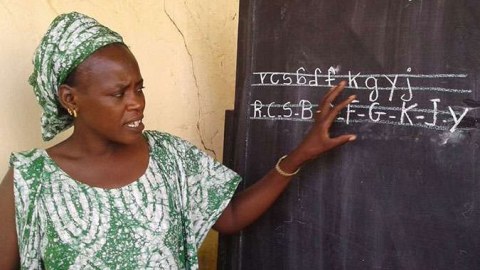 r c s ɓ ɗ f k g y j
R-C-S-B- -F-G-K-J-Y